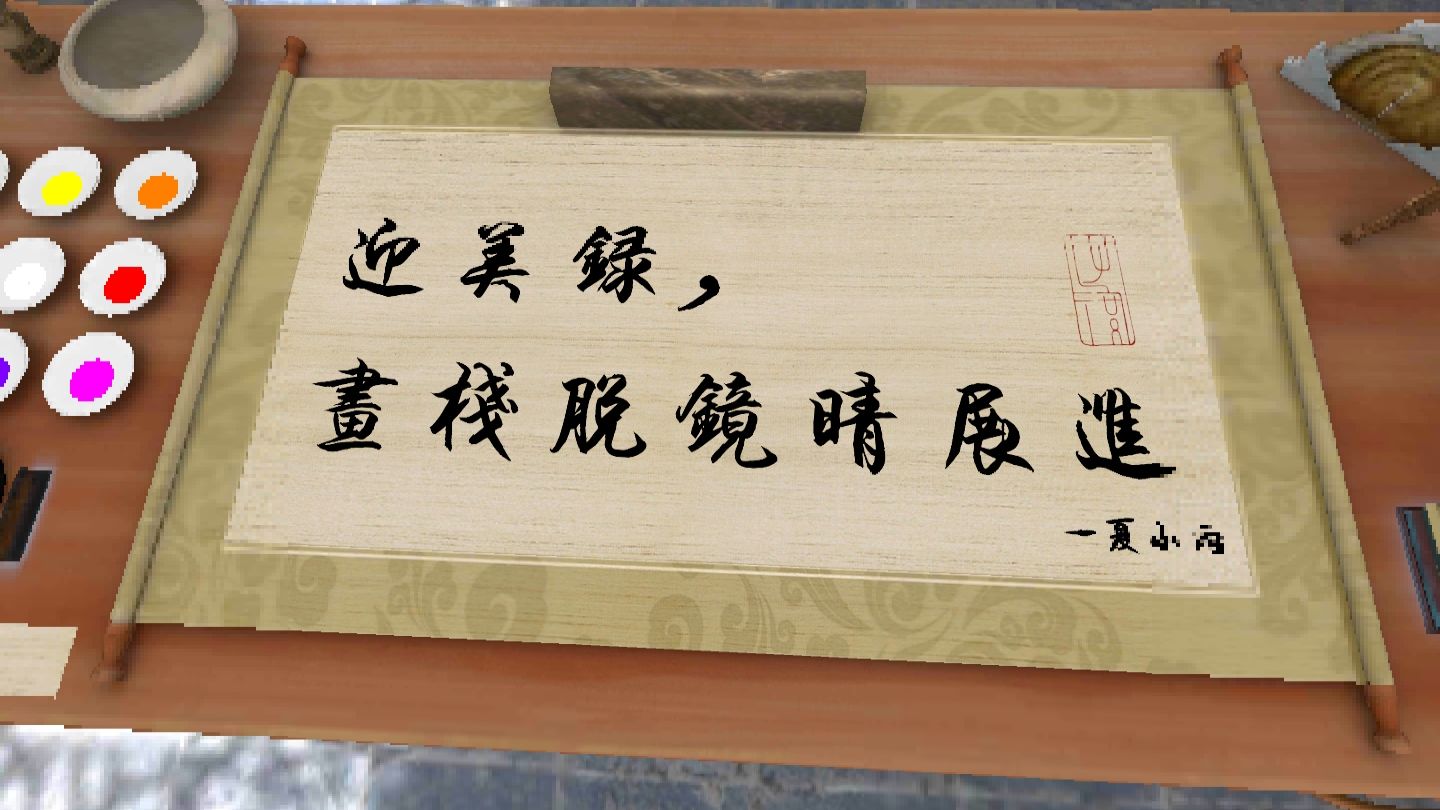 迎美録，
畫棧脫鏡晴展進
一夏小